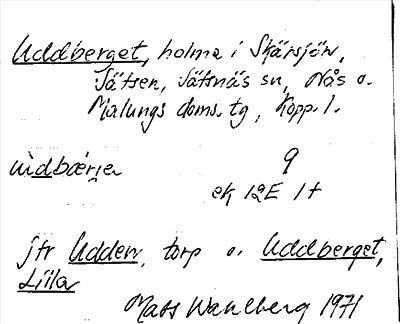 Uddberget, holme i Skärsjön,
Jätsen, Jätsnäs sn, Nås o.
Malungs doms. tg, Kopp. l.
ùdbærje 9
ek 12E 1f
jfr Udden, torp o. Uddberget,
Lilla
Mats Wahlberg 1971